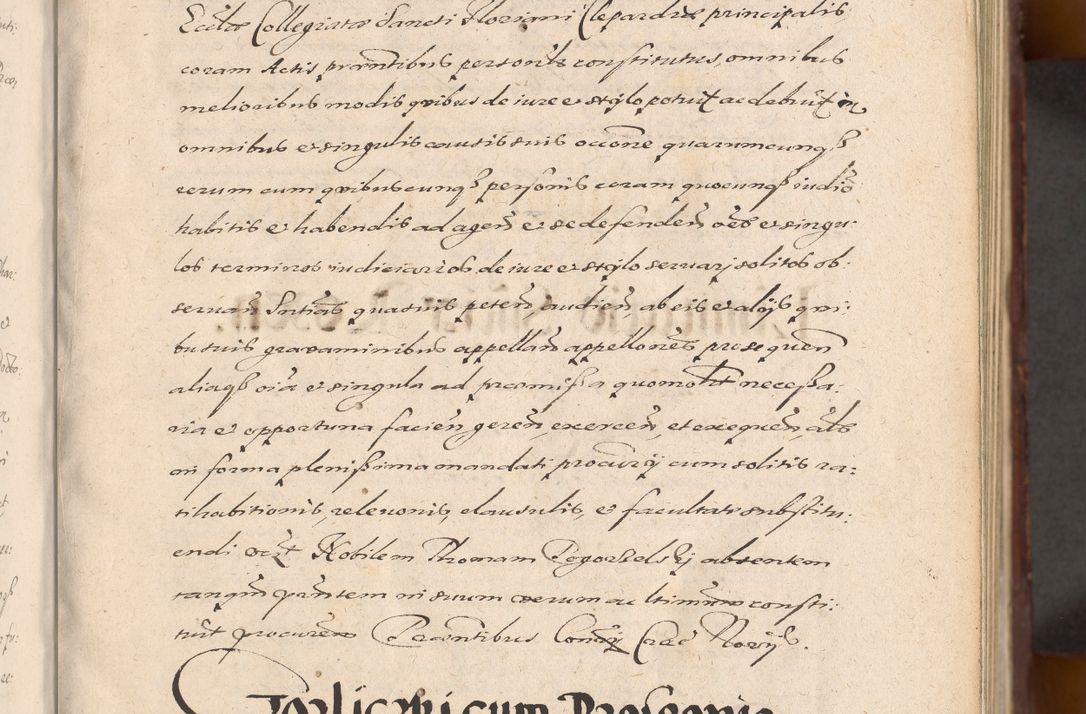 Eccliæ Collegiatæ Sancti Floriani Clepardiæ principalis
coram Actis præntibus personlr constitutus, omnibus
melioribus modis quibus de iure et stylo potuit ac debuit in
omnibus et singulis causis suis occone quarumcunqȝ
rerum cum quibuscunqȝ personis coram quocunqȝ iudio
habitis et habendis ad agen et se defenden oes et singu:
los terminos iudiciarios de iure et stylo seruarj solitos ob:
seruan Sntias quasuis peten audien, ab eis et alijs qui:
busuis grauaminibus appellan appellones prosequen
aliaqȝ oia et singula ad præmissa quomolt necessa:
ria et opportuna facien, geren, exercen, et exequen, als
in forma plenissima mandati procurij cum solitis ra:
tihabitionis, releuonis, clausulis, et facultate substitu:
endi vczt Nobilem Thomam Pogorzelskj absentem
tanqm præntem in suum verum ac ltimum consti:
tuit procurem Præntibus Conrij Crac Norijs.
Gorliczki cum Prosconio